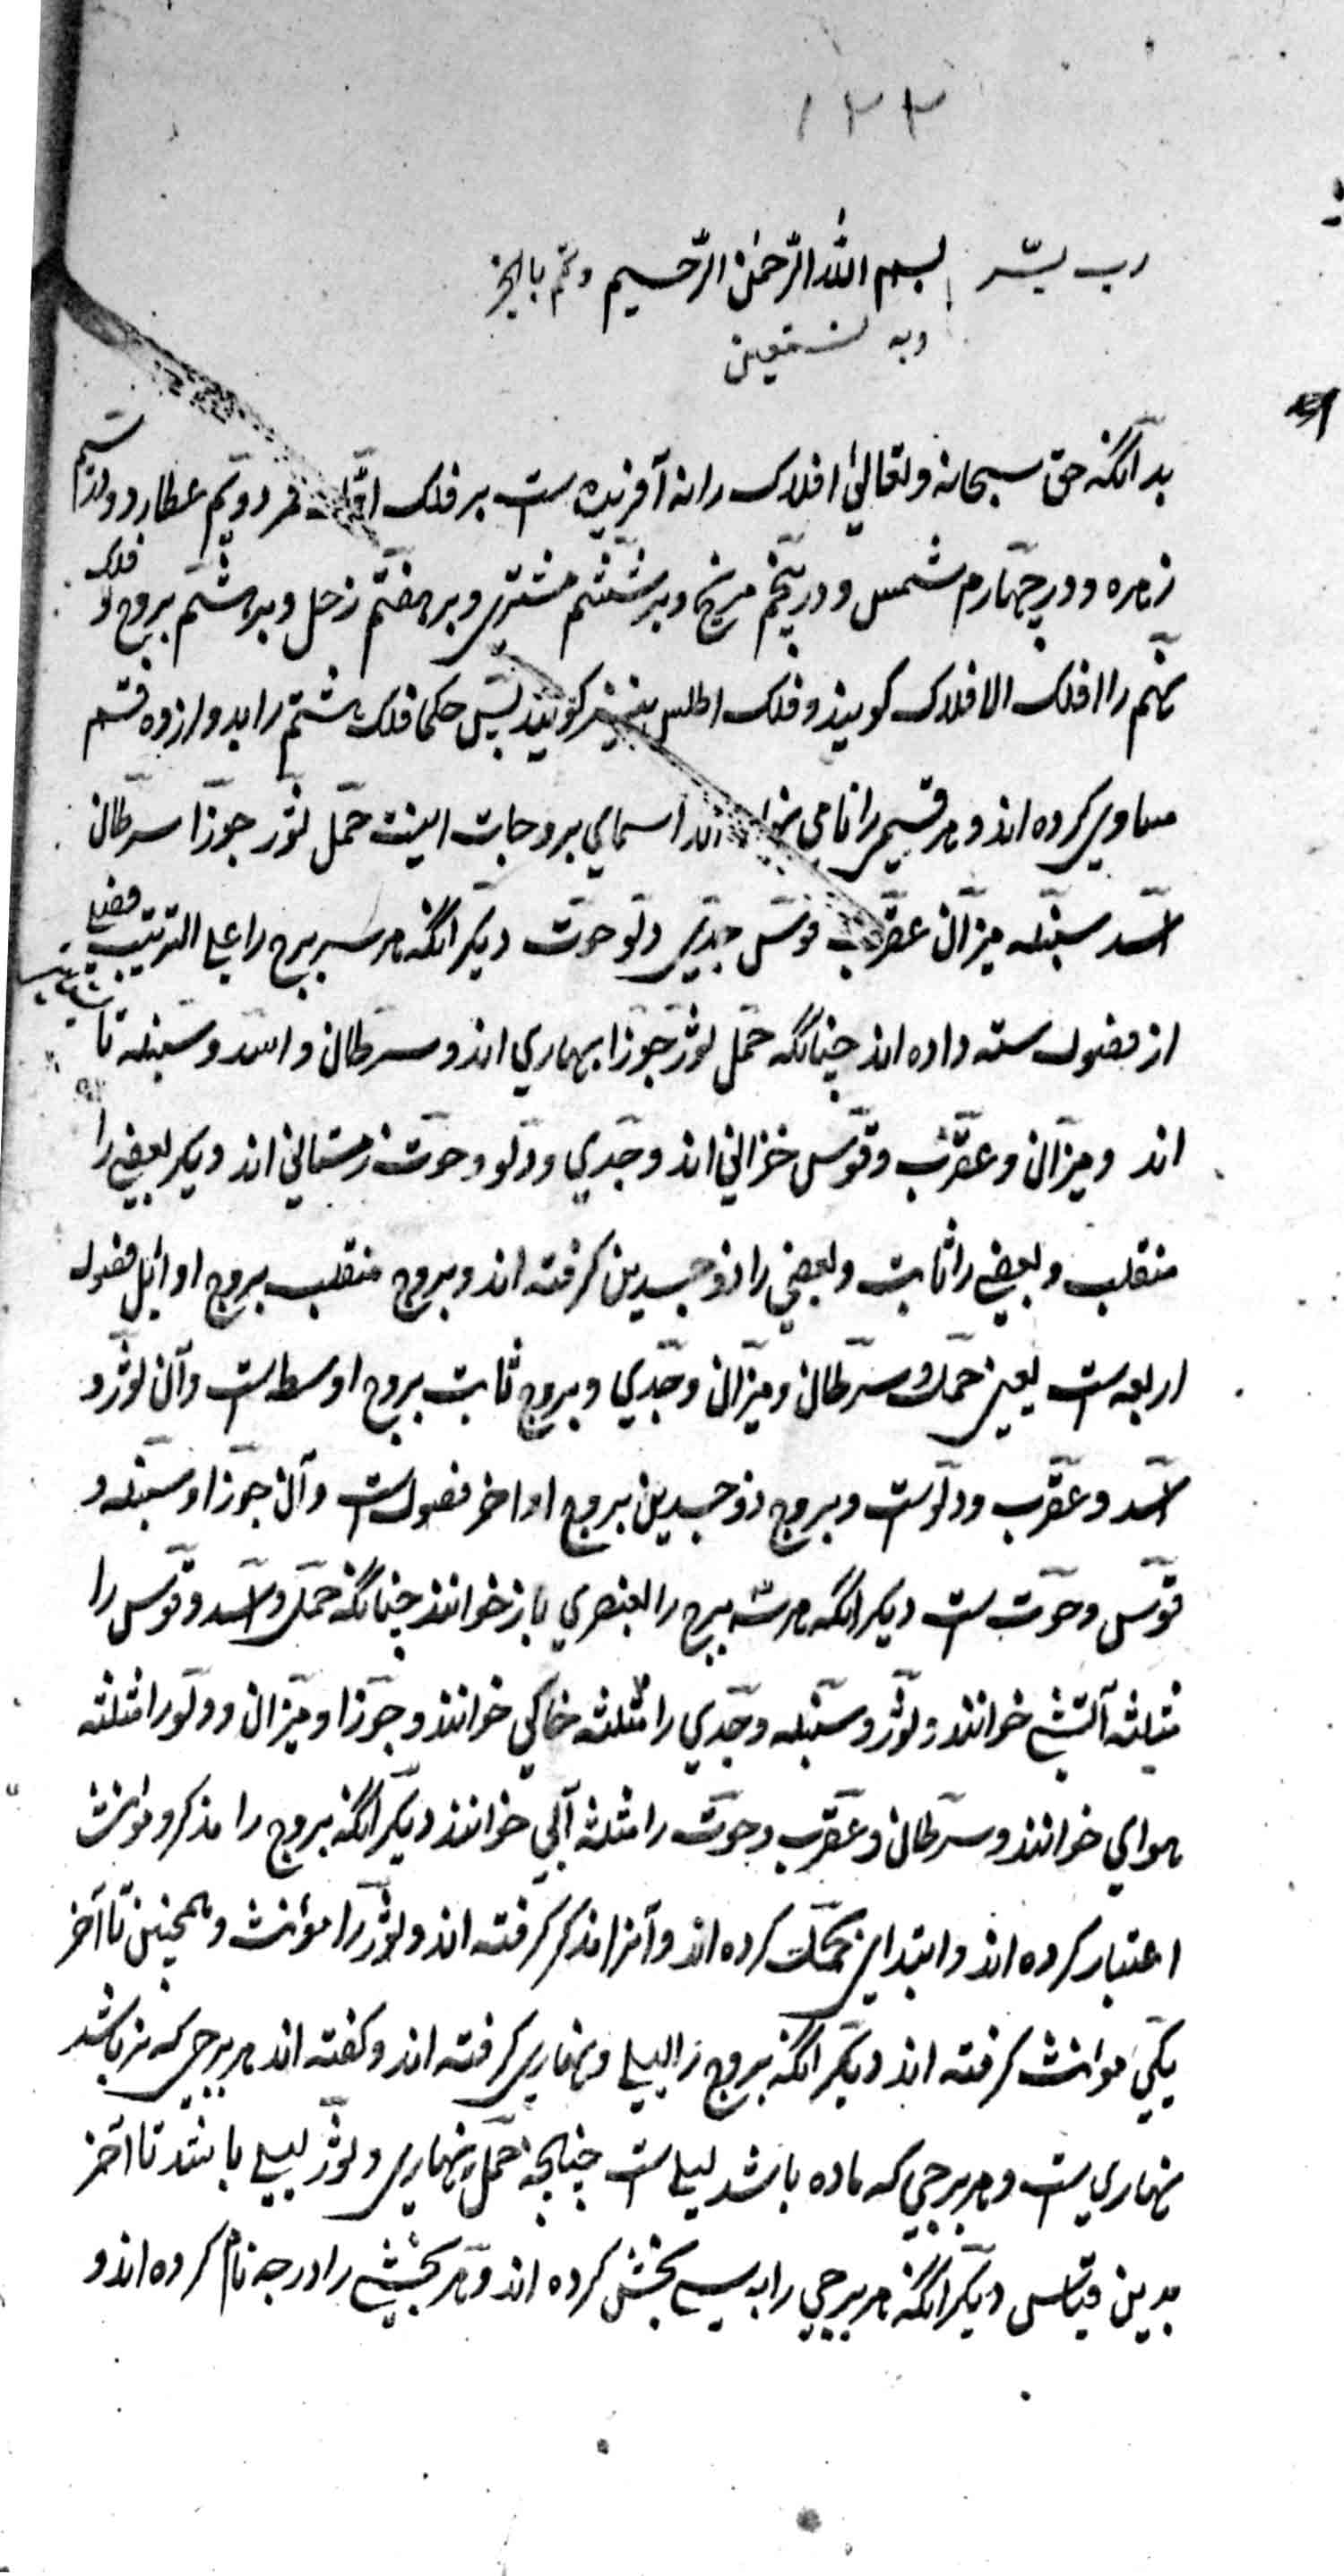 ۱۲۲
رب یسّر بسم الله الرّحمن الرّحیم وتمّم بالخیر
وبه نستعین
بدآنکه حق سبحانه وتعالیٰ افلاک را نه آفریده است بر فلک اوّل قمر و دویم عطارد و در سیم
زهره و در چهارم شمس و در پنجم مریخ و بر ششم مشتری و بر هفتم زحل و بر هشتم بروج و فلک
نهم را افلک الافلاک کویند و فلک اطلس نیز کویند پس حکما فلک هشتم را بدوازده قسم
مساوی کرده اند و هر قسم را نامی اند اسمای بروجات اینست حمل ثور جوزا سرطان
اسد سنبله میزان عقرب قوس جدی دلو حوت دیکر انکه هر سه برج را علی الترتیب فصلی
از فصول سته داده اند چنانکه حمل ثور جوزا بهاری اند و سرطان و اسد و سنبله تابستانی
اند و میزان و عقرب و قوس خزانی اند و جدی و دلو و حوت زمستانی اند دیکر بعضی را
منقلب و بعضی را ثابت و بعضی را ذوجسدین کرفته اند و بروج منقلب بروج اوائل فصول
اربعه است یعنی حمل و سرطان و میزان و جدی و بروج ثابت بروج اوسط است و آن ثور و
اسد و عقرب و دلوست و بروج ذوجسدین بروج اواخر فصول است و آن جوزا و سنبله و
قوس و حوت است دیکر انکه هر سه برج را بعنصری باز خوانند چنانکه حمل و اسد و قوس را
مثلثه آتشی خوانند و ثور و سنبله و جدی را مثلثه خاکی خوانند و جوزا و میزان و دلو را مثلثه
هوای خوانند و سرطان و عقرب و حوت را مثلثه آبی خوانند دیکر انکه بروج را مذکر و مؤنث
اعتبار کرده اند و ابتدا از حمل کرده اند و آنرا مذکر کرفته اند و ثور را مؤنث و همچنین تا آخر
یکی مؤنث کرفته اند دیکر انکه بروج را لیلی و نهاری کرفته اند و کفته اند هر برجی که نر باشد
نهاری است و هر برجی که ماده باشد لیلی است چنانچه حمل نهاری و ثور لیلی باشد تا آخر
بدین قیاس دیکر انکه هر برجی را به سی بخش کرده اند و هر بخشی را درجه نام کرده اند و